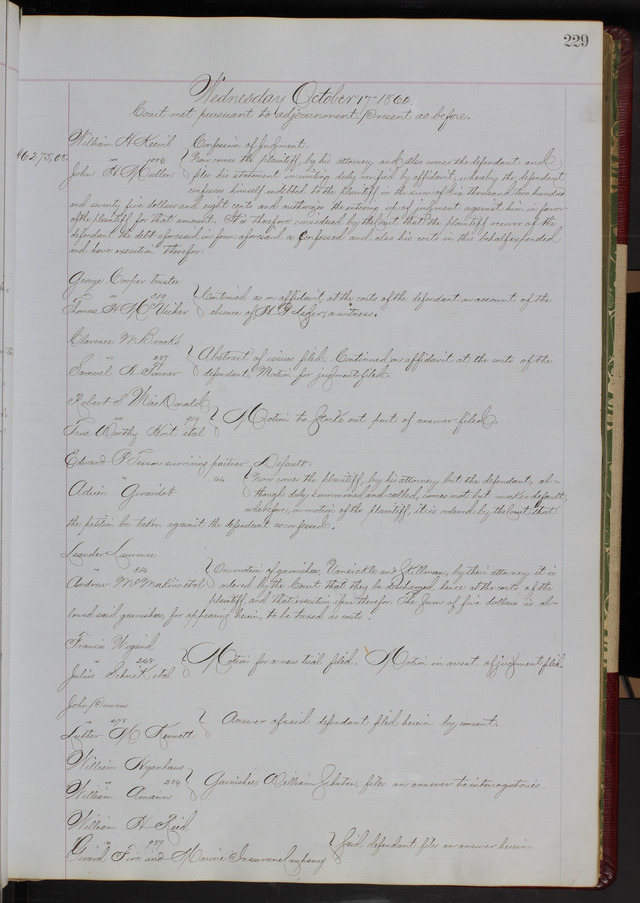 229
Wednesday October 17th 1860.
Court met pursuant to adjournment, Present as before.
William H Keevil Confession of Judgment.
$6275,08. vs 1016 Now comes the plaintiff, by his attorney, and also comes the defendant and
John H Mullen files his statement in writing duly verified by affidavit, whereby the defendant
confesses himself indebted to the plaintiff in the sum of six thousand two hundred
and seventy five dollars and eight cents and authorizes the entering up of judgment against him in favor
of the plaintiff for that amount. It is therefore considered by the Court that the plaintiff recover of the
defendant the debt aforesaid in form aforesaid as confessed and also his costs in this behalf expended
and have execution therefor.
George Cooper Trustee
vs 219 Continued as on affidavit at the costs of the defendant on account of the
Thomas H McVicker absence of H G Leger, a witness.
Clarence M Brooks
vs 237 Abstract of issues filed. Continued on affidavit at the costs of the
Samuel B Turner defendant, Motion for judgment filed.
Robert S MacDonald
vs Motion to Strike out part of answer filed.
True Worthy Hoit et al
Edward P Tesson surviving partner Default.
vs Now comes the plaintiff, by his attorney but the defendant, al-
Adrien Girardot though duly summoned and called, comes not but makes default,
wherefore, on motion of the plaintiff, it is ordered by the Court that
the petition be taken against the defendant as confessed.
Leander Lawrence
vs On motion of garnishees, Vansickle and Skillman, by their attorney it is
Andrew McMakin et al ordered by the Court that they be discharged hence at the costs of the
plaintiff, and that execution issue therefor. The Sum of five dollars is al-
lowed said garnishees, for appearing herein, to be taxed as costs.
Francis Wigand
vs 268 Motion for a new trial filed. Motion in arrest of judgment filed.
Julius et al
John Bowen
vs 278 Answer of said defendant filed herein by consent.
Luther M Kennett
William
vs 286 Garnishee, William, files an answer to interrogatories.
William
William H Reed
vs Said defendant files an answer herein
Girard Fire and Marine Insurance Company